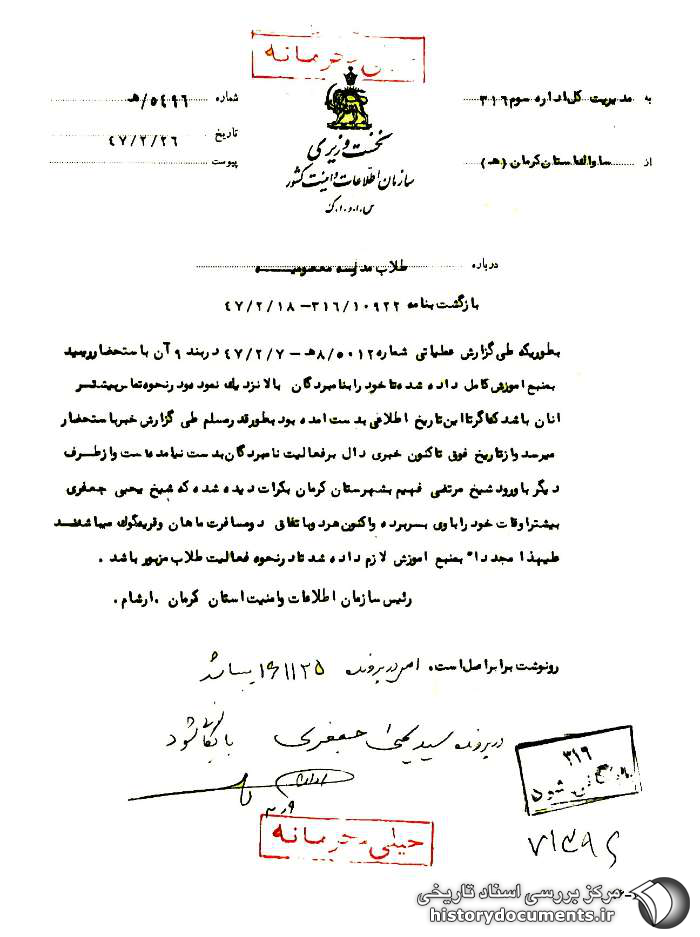 خیلی محرمانه
به مدیریت کل اداره سوم ۳۱۶
شماره ۵۴۹۶/هـ
تاریخ ۴۷/۲/۲۶
از ساواک استان کرمان (هـ)
پیوست
نخست وزیری
سازمان اطلاعات و امنیت کشور
س.ا.و.ا.ک
درباره طلاب مدرسه معصومیه
بازگشت بنامه ۳۱۶/۱۰۹۲۲–۴۷/۲/۱۸
بطوریکه طی گزارش عملیاتی شماره ۸/۵۰۱۲هـ – ۴۷/۲/۷ در بند ۹ آن باستحضار رسید
بمنبع اموزش کامل داده شده تا خود را بنامبردگان بالا نزدیک نموده و در نحوه تماس بیشتر
انان باشد کماگر تا این تاریخ اطلاعی بدست امده بود بطور قدر مسلم طی گزارش خبر باستحضار
میرسد و از تاریخ فوق تاکنون خبری دال بر فعالیت نامبردگان بدست نیامده است و از طرف
دیگر با ورود شیخ مرتضی فهیم بشهرستان کرمان بکرات دیده شده که شیخ یحیی جعفری
بیشتر اوقات خود را با وی بسر برده و اکنون هر دو باتفاق در مسافرت ماهان و قریه گوک میباشند
علیهذا مجددا" بمنبع اموزش لازم داده شد تا در نحوه فعالیت طلاب مزبور باشد .
رئیس سازمان اطلاعات وامنیت استان کرمان .ارشام.
رونوشت برابر اصل است. اصل در پرونده ۱۶۱۱۲۵ میباشد
در پرونده سید یحیی جعفری بایگانی شود
۳۱۶
بایگانی شود
۷۱۳۹۶
خیلی محرمانه
مرکز بررسی اسناد تاریخی
historydocuments.ir